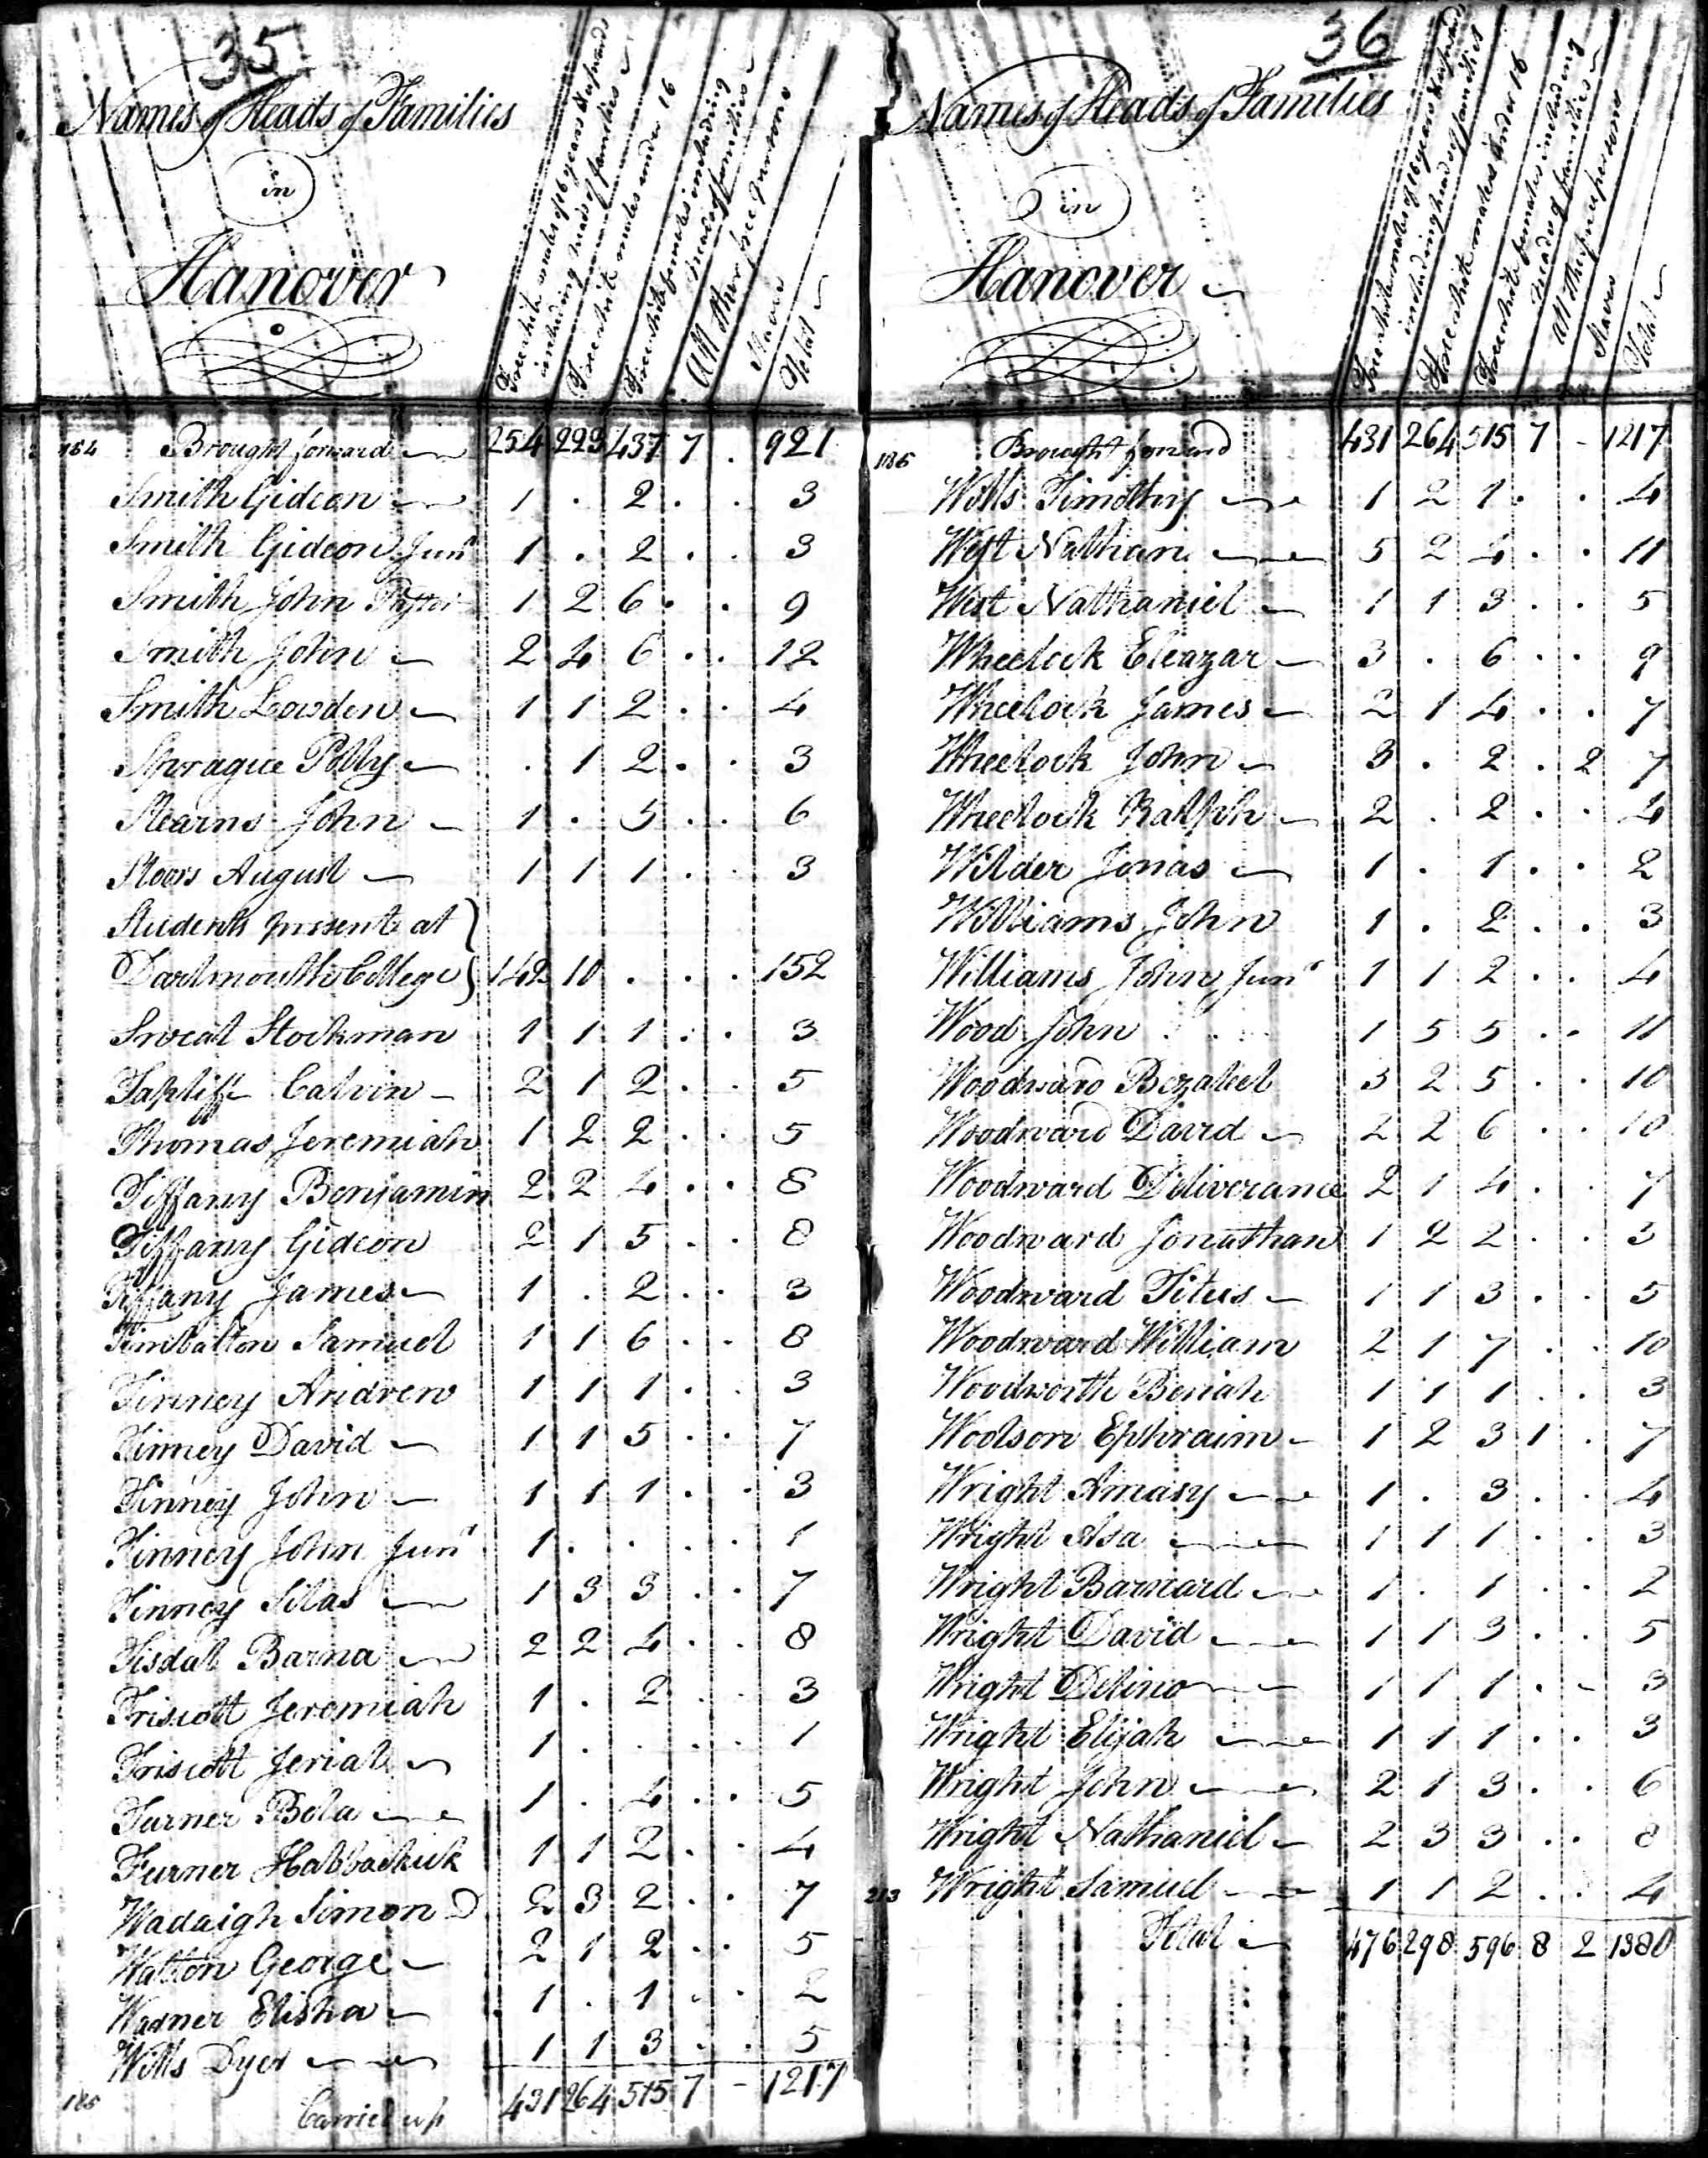 35
Names of Heads of Families
in
Hanover
Free white males of 16 years & upwards
including heads of families
Free white males under 16
Free white females including
heads of families
All other free persons
Slaves
Total
154 Brought forward 254 223 437 7 . 921
Smith Gideon 1 . 2 . . 3
Smith Gideon Junr 1 . 2 . . 3
Smith John 1 2 6 . . 9
Smith John 2 4 6 . . 12
Smith Lowden 1 1 2 . . 4
Sprague Polly . 1 2 . . 3
Stearns John 1 . 5 . . 6
Stoors August 1 1 1 . . 3
Students present at
Dartmouth College 142 10 . . . 152
Sweat Stockman 1 1 1 . . 3
Calvin 2 1 2 . . 5
Thomas Jeremiah 1 2 2 . . 5
Tiffany Benjamin 2 2 4 . . 8
Tiffany Gideon 2 1 5 . . 8
Tiffany James 1 . 2 . . 3
Samuel 1 1 6 . . 8
Tinney Andrew 1 1 1 . . 3
Tinney David 1 1 5 . . 7
Tinney John 1 1 1 . . 3
Tinney John Junr 1 . . . . 1
Tinney Silas 1 3 3 . . 7
Tisdal Barna 2 2 4 . . 8
Triscott Jeremiah 1 . 2 . . 3
Triscott Jeriah 1 . . . . 1
Turner Bela 1 . 4 . . 5
Turner Habbackuk 1 1 2 . . 4
Wadaigh Simon D 2 3 2 . . 7
Walton George 2 1 2 . . 5
Warner Elisha 1 . 1 . . 2
Wills Dyer 1 1 3 . . 5
185 Carried up 431 264 515 7 - 1217
36
Names of Heads of Families
in
Hanover
Free white males of 16 years & upwards
including heads of families
Free white males under 16
Free white females including
heads of families
All other free persons
Slaves
Total
185 Brought forward 431 264 515 7 - 1217
Wills Timothy 1 2 1 . . 4
West Nathan 5 2 4 . . 11
West Nathaniel 1 1 3 . . 5
Wheelock Eleazar 3 . 6 . . 9
Wheelock James 2 1 4 . . 7
Wheelock John 3 . 2 . 2 7
Wheelock Ralph 2 . 2 . . 4
Wilder Jonas 1 . 1 . . 2
Williams John 1 . 2 . . 3
Williams John Junr 1 1 2 . . 4
Wood John 1 5 5 . . 11
Woodward Bezaleel 3 2 5 . . 10
Woodward David 2 2 6 . . 10
Woodward Deliverance 2 1 4 . . 7
Woodward Jonathan 1 2 2 . . 5
Woodward Titus 1 1 3 . . 5
Woodward William 2 1 7 . . 10
Woodworth Beriah 1 1 1 . . 3
Woolson Ephraim 1 2 3 1 . 7
Wright Amasy 1 . 3 . . 4
Wright Asa 1 1 1 . . 3
Wright Barnard 1 . 1 . . 2
Wright David 1 1 3 . . 5
Wright Delino 1 1 1 . . 3
Wright Elijah 1 1 1 . . 3
Wright John 2 1 3 . . 6
Wright Nathaniel 2 3 3 . . 8
213 Wright Samuel 1 1 2 . . 4
Total 476 298 596 8 2 1380